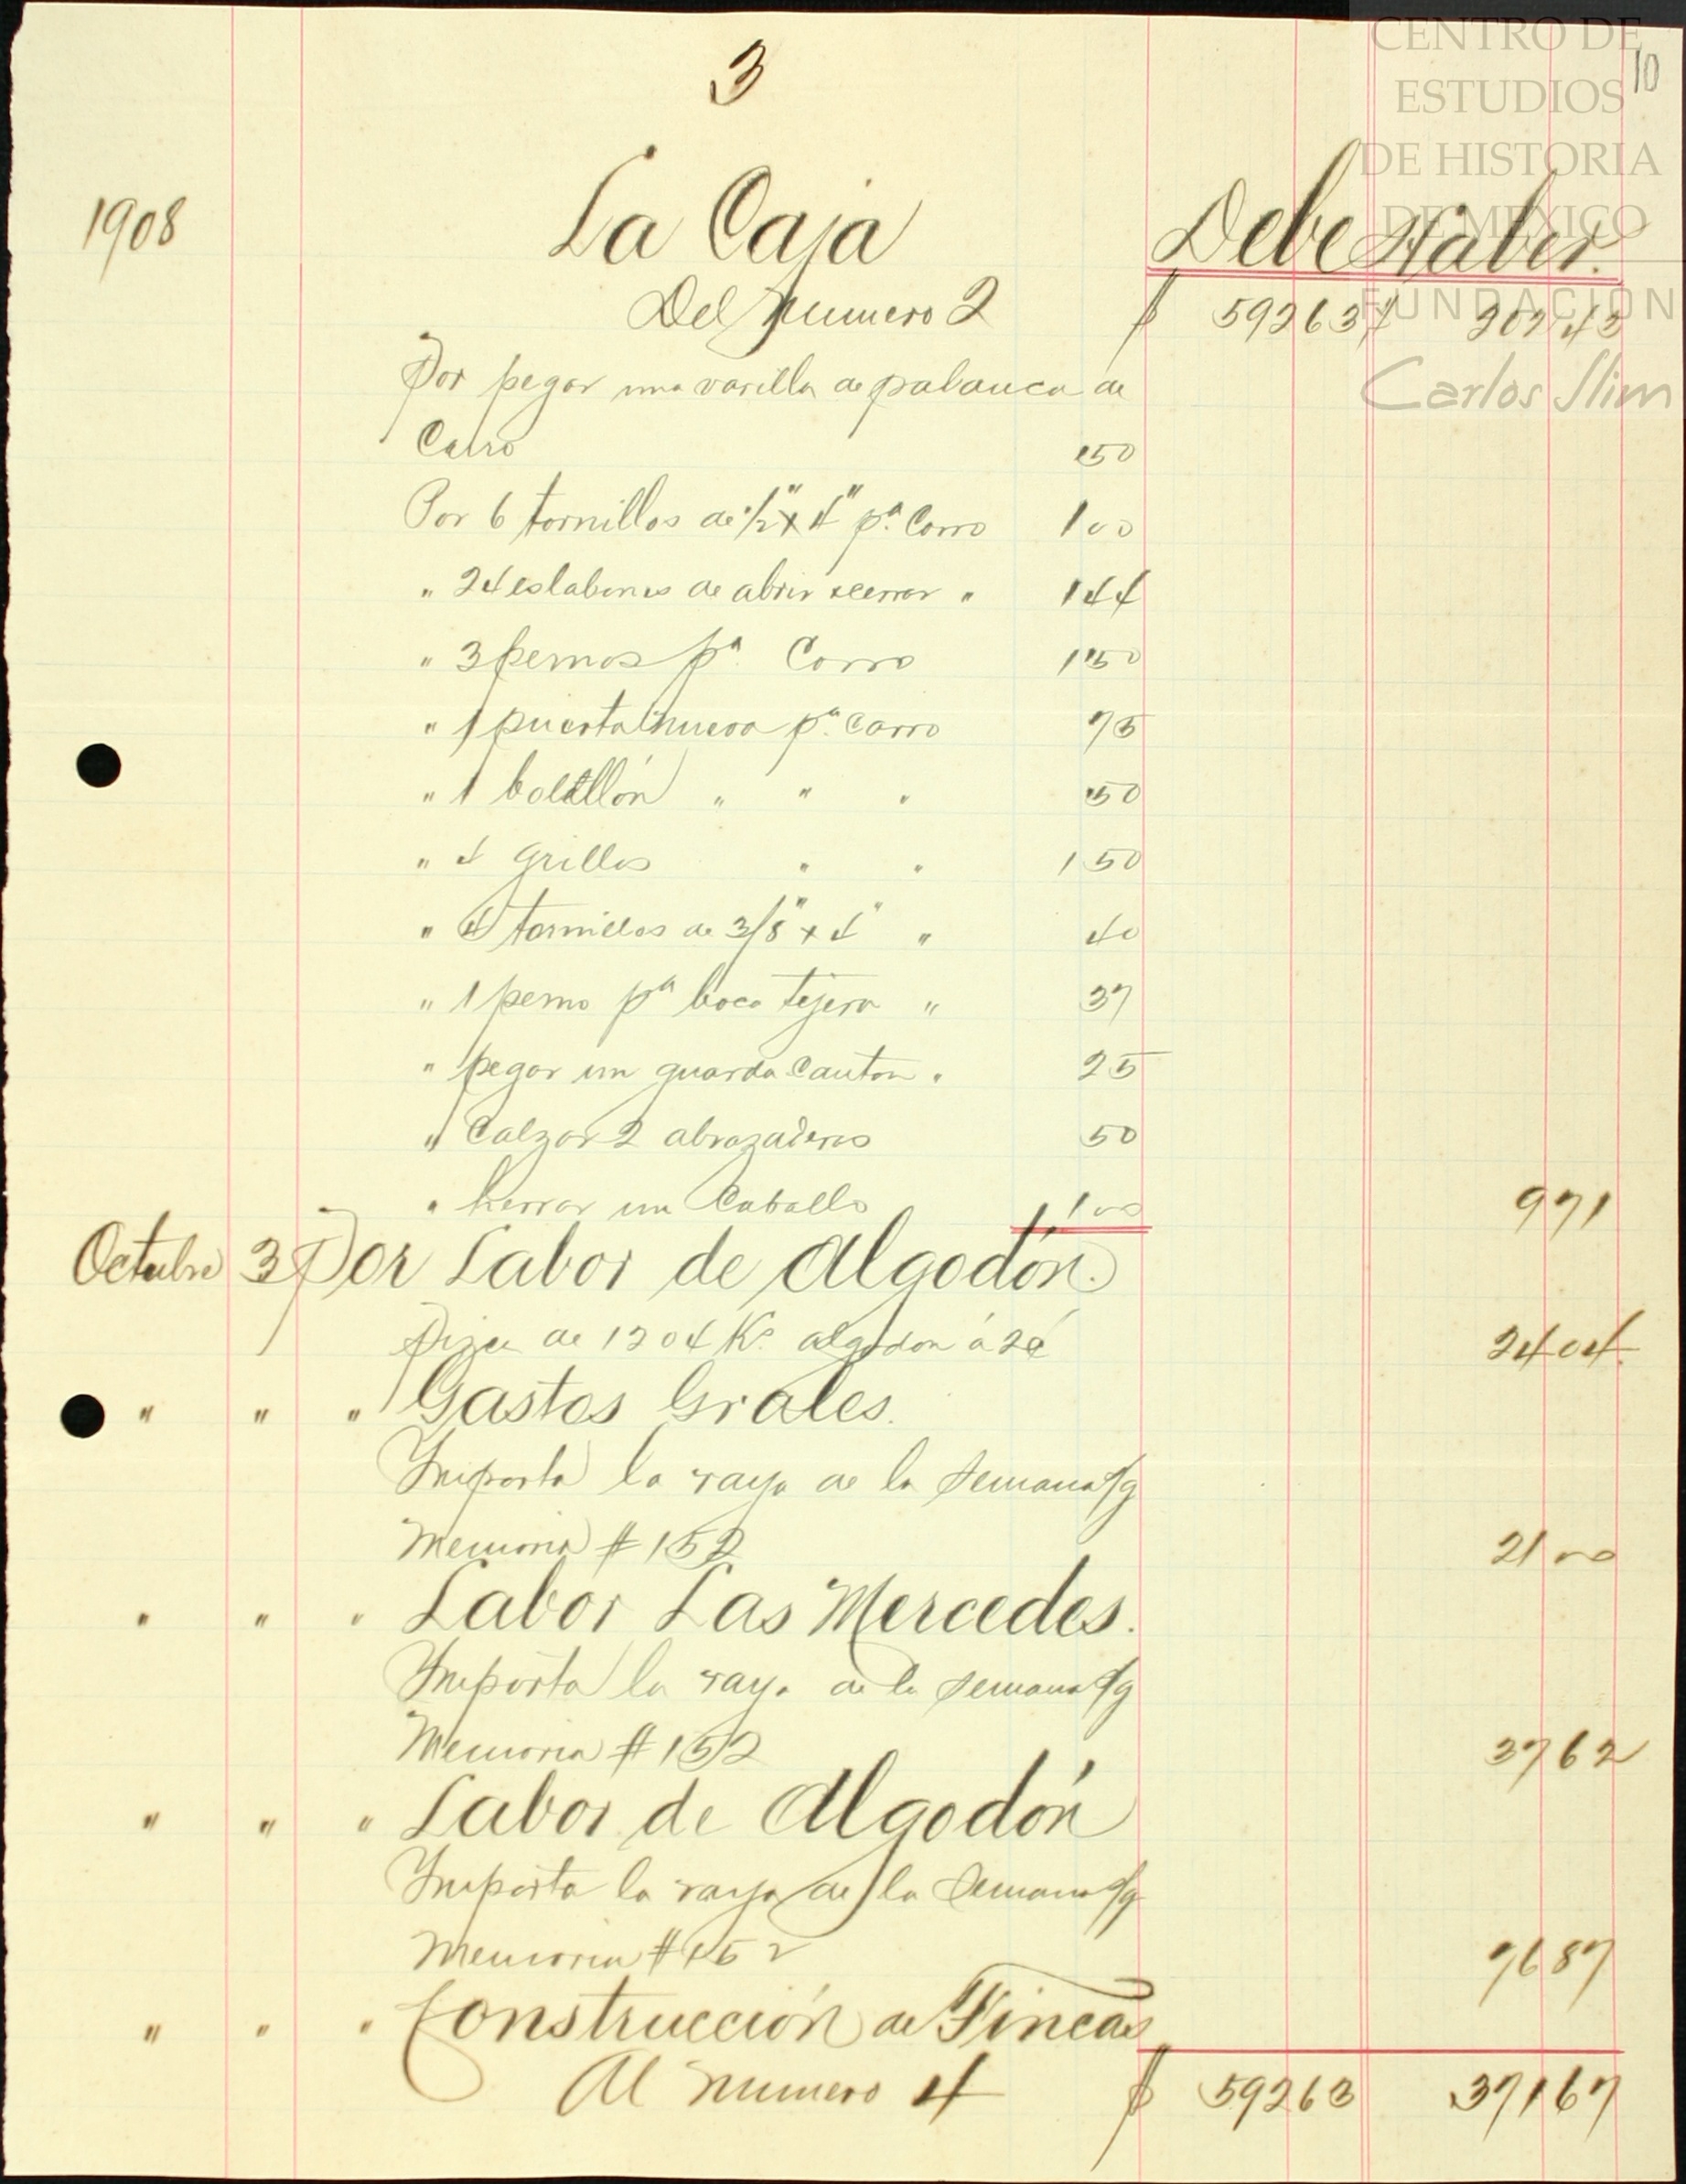 3
10
CENTRO DE
ESTUDIOS
DE HISTORIA
DE MÉXICO
FUNDACIÓN
Carlos Slim
1908 La Caja Debe Haber.
Del numero 2 $ 59263 20243
Por pegar una varilla de palanca de
Carro 50
Por 6 tornillos de 1/2" x 4" pª. Carro 100
" 24 eslabones de abrir y cerrar " 144
" 3 pernos pª. Carro 150
" 1 puerta nueva pª. Carro 75
" 1 " " " 50
" 4 grillos " " 150
" 4 tornillos de 3/8" x 4" " 40
" 1 perno pª boca tijera " 37
" pegar un guarda canton " 25
" Calzar 2 abrazaderas 50
" herrar un Caballo 100 971
Octubre 3 Por Labor de Algodón.
Pizca de 1204 Ks. algodon á 2¢ 2404
" " " Gastos Grales.
Importa la raya de la semana s/g
Memoria # 152 2100
" " " Labor Las Mercedes.
Importa la raya de la semana s/g
Memoria # 152 3762
" " " Labor de Algodón
Importa la raya de la semana s/g
Memoria # 152 7687
" " " Construcción de Fincas
Al numero 4 $ 59263 37167